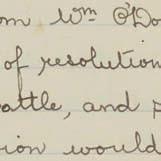 om Wm O'Do
of resolution
attle, and
ion would